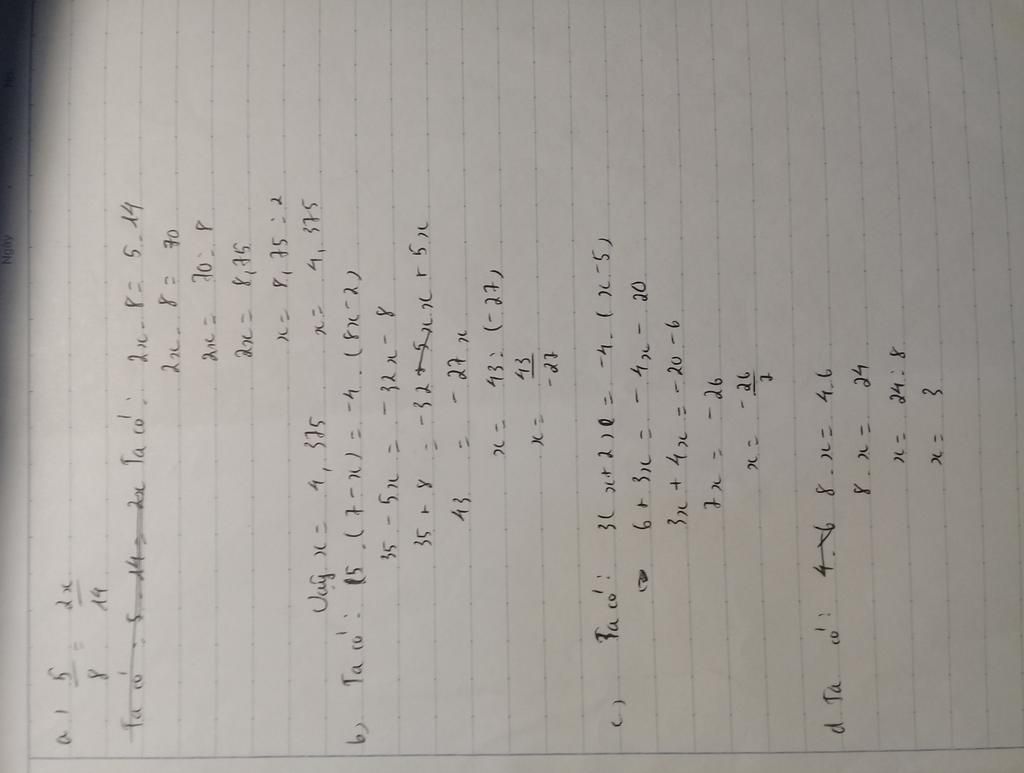 Ngày
No:
a) 5/8 = 2x/14
Ta có: 5 . 14 = 2x Ta có: 2x . 8 = 5 . 14
2x . 8 = 70
2x = 70 : 8
2x = 8,75
x = 8,75 : 2
Vậy x = 4,375 x = 4,375
b) Ta có: 5 . (7 - x) = -4 . (8x - 2)
35 - 5x = -32x - 8
35 + 8 = -32 x + 5x
43 = -27x
x = 43 : (-27)
x = 43/-27
c) Ta có: 3(x + 2) = -4 . (x - 5)
6 + 3x = -4x - 20
3x + 4x = -20 - 6
7x = -26
x = -26/7
d Ta có: 4 . 6 8 . x = 4.6
8 . x = 24
x = 24 : 8
x = 3